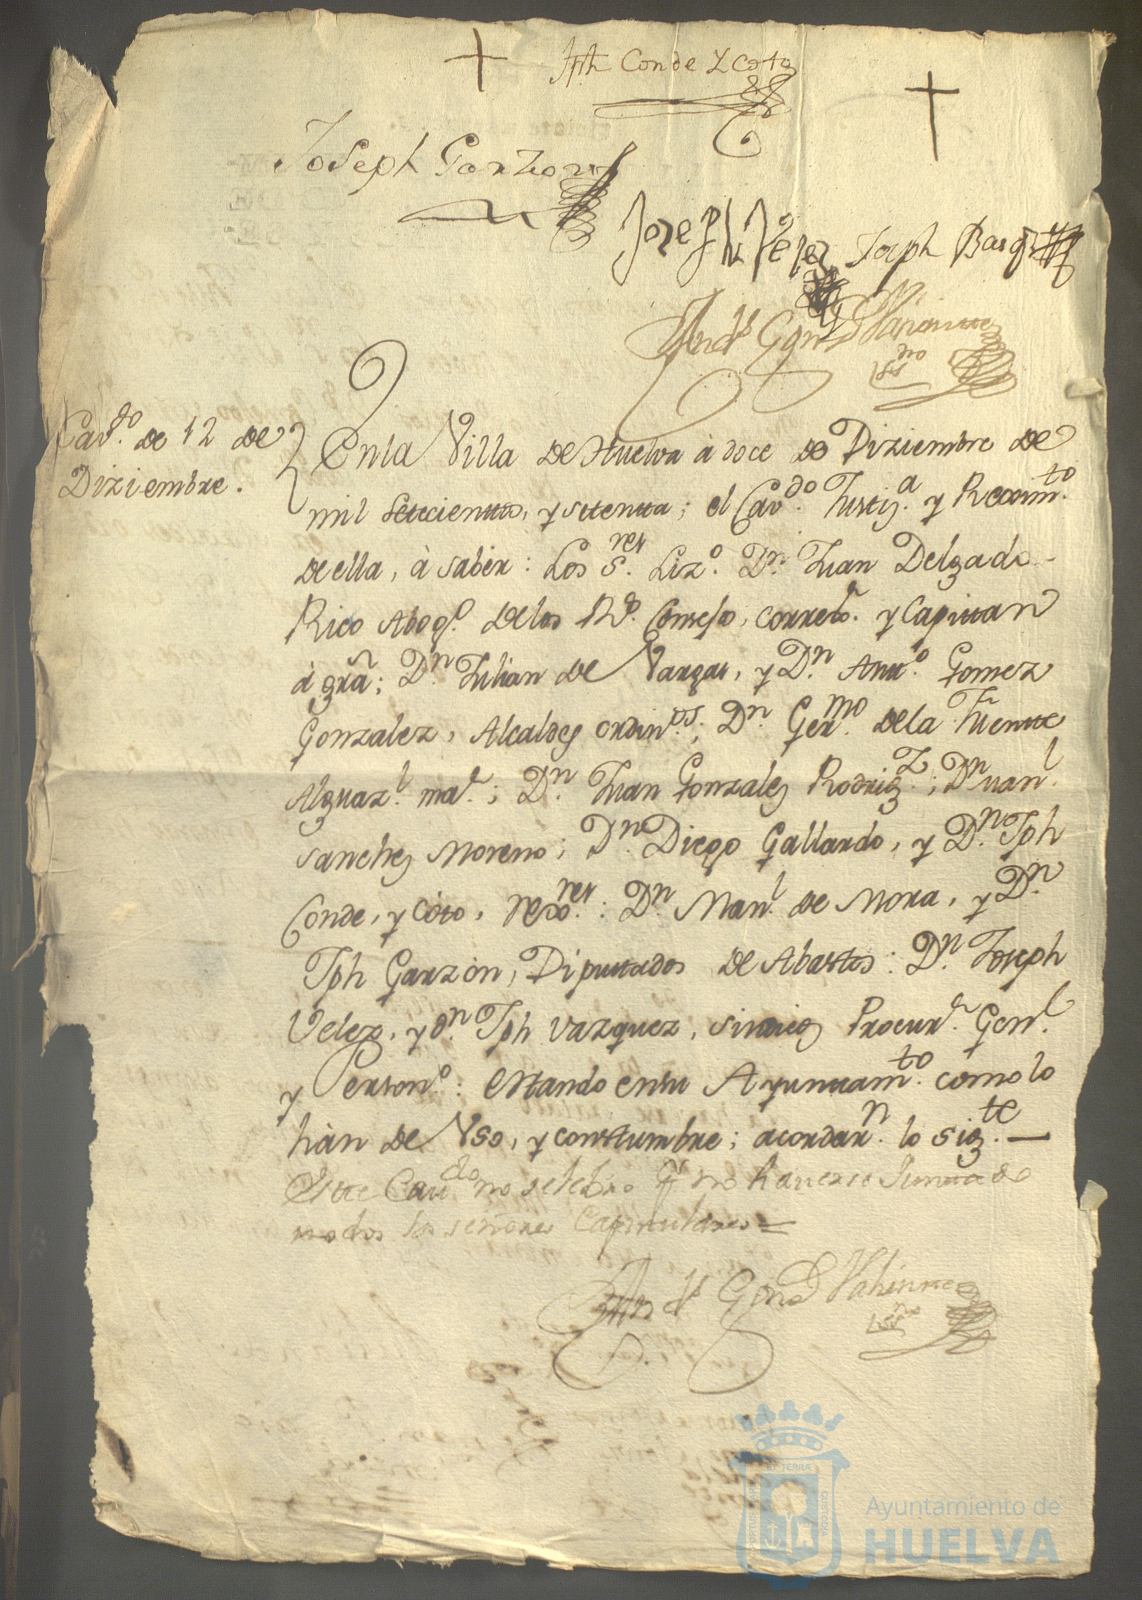 Jph Conde Y Coto
Joseph Garzon
Josef Velez Joseph Basq
Cav.do de 12 de
Diziembre.
En la Villa de Huelva à doce de Diziembre de
mil setecientos, y setenta; el Cav.do Justiz.a y Reximto.
de ella, à saber: Los S.res Liz.o D.n Juan Delgado
Rico Abog.o de los R.s Consejos, correx.r y Capitan
à grã; D.n Julian de Vargas, y D.n Ant.o Gomez
Gonzalez, Alcaldes ordin.os; D.n Ger.mo de la Fuente
Alguaz.l ma.r; D.n Juan Gonzalez Rodrig.z; D.n Man.l
Sanchez Moreno; D.n Diego Gallardo, y D.n Jph
Conde, y Coto, Rexo.res: D.n Man.l de Mora, y D.n
Jph Garzòn, Diputados de Abastos: D.n Joseph
Velez, y d.n Jph Vazquez, Sindicos Procur.r Gen.l
y Person.o: estando en su Ayuntam.to como lo
hàn de Vso, y constumbre; acordar.n lo sig.te —
Este Cav.do no se lebro p.r no haverse Juntado
todos los señores Capitulares =
Ayuntamiento de
HUELVA